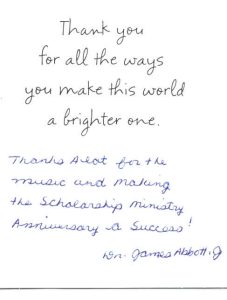 Thank you
for all the ways
you make this world
a brighter one.
Thanks Alot for the
music and making
the Scholarship Ministry
Anniversary a Success!
James Abbott, Jr